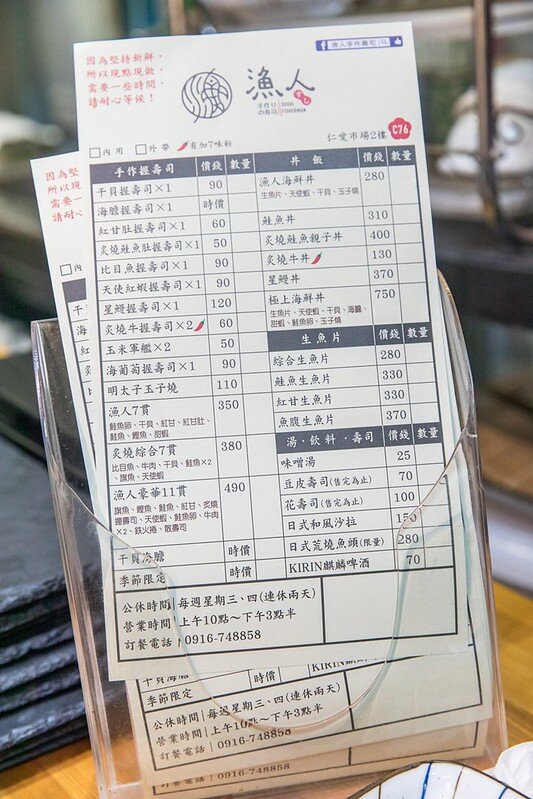 因為堅持新鮮，
所以現點現做，
需要一些時間，
請耐心等候！
漁人手作壽司
漁人
すし
手作り
の寿司
SUSHI
FISHERMAN
仁愛市場2樓 C76
內用 外帶 有加7味粉
手作握壽司 價錢 數量
干貝握壽司×1 90
海膽握壽司×1 時價
紅甘肚握壽司×1 60
炙燒鮭魚肚握壽司×1 50
比目魚握壽司×1 90
天使紅蝦握壽司×1 90
星鰻握壽司×1 120
炙燒牛握壽司×2 60
玉米軍艦×2 50
海葡萄握壽司×1 90
明太子玉子燒 110
漁人7貫 350
鮭魚卵、干貝、紅甘、紅甘肚、
鮭魚、鰹魚、甜蝦
炙燒綜合7貫 380
比目魚、牛肉、干貝、鮭魚×2
、旗魚、天使蝦
漁人豪華11貫 490
旗魚、鰹魚、鮭魚、紅甘、炙燒
握壽司、天使蝦、鮭魚卵、牛肉
×2、鐵火捲、散壽司
干貝海膽 時價
季節限定 時價
丼飯
漁人海鮮丼 280
生魚片、天使蝦、干貝、玉子燒
鮭魚丼 310
炙燒鮭魚親子丼 400
炙燒牛丼 130
星鰻丼 370
極上海鮮丼 750
生魚片、天使蝦、干貝、海膽、
甜蝦、鮭魚卵、玉子燒
生魚片 價錢 數量
綜合生魚片 280
鮭魚生魚片 330
紅甘生魚片 330
魚腹生魚片 370
湯．飲料．壽司 價錢 數量
味噌湯 25
豆皮壽司(售完為止) 70
花壽司(售完為止) 100
日式和風沙拉 150
日式荒燒魚頭(限量) 280
KIRIN麒麟啤酒 70
公休時間 每週星期三、四(連休兩天)
營業時間 上午10點～下午3點半
訂餐電話 0916-748858
因為堅
所以現
需要一
請耐心
內
干貝海膽
時價
KIRIN麒麟啤酒
季節限定
公休時間 每週星期三、四(連休兩天)
營業時間 上午10點～下午3點半
訂餐電話 0916-748858